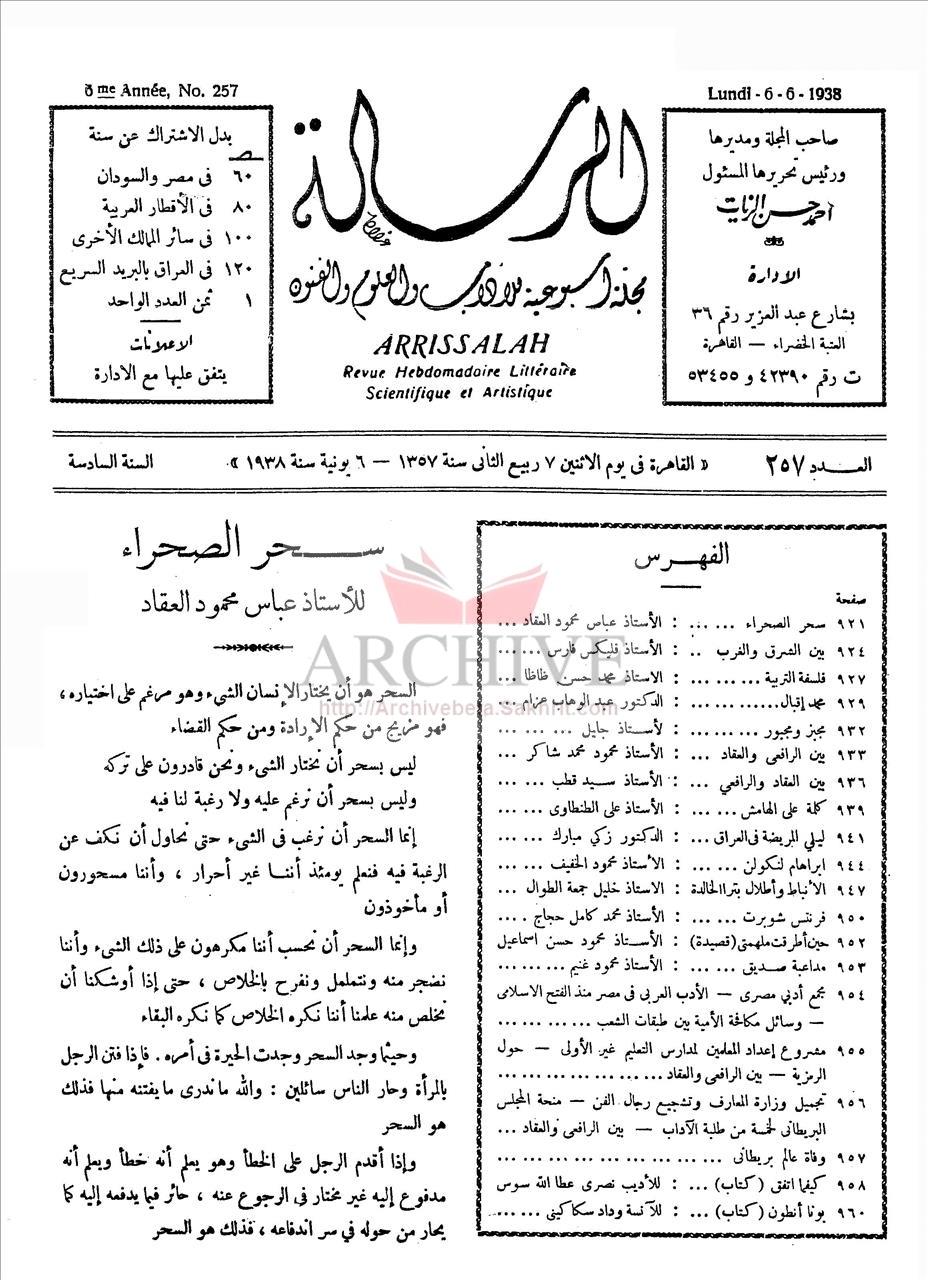 6me Année, No. 257
Lundi - 6 - 6 - 1938
صاحب المجلة ومديرها
ورئيس تحريرها المسئول
احمد حسن الزيات
الادارة
بشارع عبد العزيز رقم ٣٦
العتبة الخضراء — القاهرة
ت رقم ٤٢٣٩٠ و ٥٣٤٥٥
الرسالة
مجلة أسبوعية للآداب والعلوم والفنون
ARRISSALAH
Revue Hebdomadaire Littéraire
Scientifique et Artistique
بدل الاشتراك عن سنة
ص
٦٠ فى مصر والسودان
٨٠ فى الأقطار العربية
١٠٠ فى سائر الممالك الأخرى
١٢٠ فى العراق بالبريد السريع
١ ثمن العدد الواحد
الاعلانات
يتفق عليها مع الادارة
العـــدد ٢٥٧
« القاهرة فى يوم الاثنين ٧ ربيع الثانى سنة ١٣٥٧ — ٦ يونية سنة ١٩٣٨ »
السنة السادسة
الفهـرس
صفحة
٩٢١ سحر الصحراء ... ... : الأستاذ عباس محمود العقاد ...
٩٢٤ بين الشرق والغرب .. : الأستاذ فليكس فارس ... ...
٩٢٧ فلسفة التربية ... ... : الاستاذ محمد حسن ظاظا ...
٩٢٩ محمد إقبال... ... ... : الدكتور عبد الوهاب عزام ...
٩٣٢ مجبز ومجبور ... ... ... : لأستاذ جليل ... ... ...
٩٣٣ بين الرافعى والعقاد ... : الأستاذ محمود محمد شاكر ...
٩٣٦ بين العقاد والرافعي ... : الأستاذ سـيد قطب ... ...
٩٣٩ كلمة على الهامش ... ... : الأستاذ على الطنطاوى ... ...
٩٤١ ليلي المريضة فى العراق ... : الدكتور زكي مبارك ... ...
٩٤٤ ابراهام لنكولن ... ... : الأستاذ محمود الخفيف ... ...
٩٤٧ الأنباط وأطلال بترا الخالدة : الاستاذ خليل جمعة الطوال ...
٩٥٠ فرنتس شوبرت ... ... : الأستاذ محمد كامل حجاج ....
٩٥٢ حين أطرقت ملهمتي (قصيدة) : الأستاذ محمود حسن اسماعيل
٩٥٣ مداعبة صديق ... ... : الأستاذ محمود غنيم ... ... ...
٩٥٤ مجمع أدبي مصرى — الأدب العربى فى مصر منذ الفتح الاسلامى
— وسائل مكافحة الأمية بين طبقات الشعب ... ... ... ...
٩٥٥ مشروع إعداد المعلمين لمدارس التعليم غير الأولى — حول
الرمزية — بين الرافعى والعقاد ... ... ... ... ... ...
٩٥٦ تجميل وزارة المعارف وتشجيع رجال الفن — منحة المجلس
البريطانى لخمسة من طلبة الآداب — بين الرافعى والعقاد ...
٩٥٧ وفاة عالم بريطانى ... ... ... ... ... ... ... ...
٩٥٨ كيفما اتفق (كتاب) ... : للأديب نصرى عطا الله سوس
٩٦٠ يونا أنطون (كتاب) ... : للآنسة وداد سكاكينى ... ...
سـحر الصحراء
للأستاذ عباس محمود العقاد
السحر هو أن يختار الإنسان الشىء وهو مرغم على اختياره ،
فهو مزيج من حكم الإرادة ومن حكم القضاء
ليس بسحر أن نختار الشىء ونحن قادرون على تركه
وليس بسحر أن نرغم عليه ولا رغبة لنا فيه
إنما السحر أن نرغب فى الشىء حتى نحاول أن نكف عن
الرغبة فيه فنعلم يومئذ أننا غير أحرار ، وأننا مسحورون
أو مأخوذون
وإنما السحر أن نحسب أننا مكرهون على ذلك الشىء وأننا
نضجر منه ونتململ ونفرح بالخلاص ، حتى إذا أوشكنا أن
نخلص منه علمنا أننا نكره الخلاص كما نكره البقاء
وحيثما وجد السحر وجدت الحيرة فى أمره . فإذا فتن الرجل
بالمرأة وحار الناس سائلين : والله ماندرى مايفتنه منها فذلك
هو السحر
وإذا أقدم الرجل على الخطأ وهو يعلم أنه خطأ ويعلم أنه
مدفوع إليه غير مختار فى الرجوع عنه ، حائر فيما يدفعه إليه كما
يحار من حوله في سر اندفاعه ، فذلك هو السحر
ARCHIVE
http://Archivebeta.Sakhrit.com